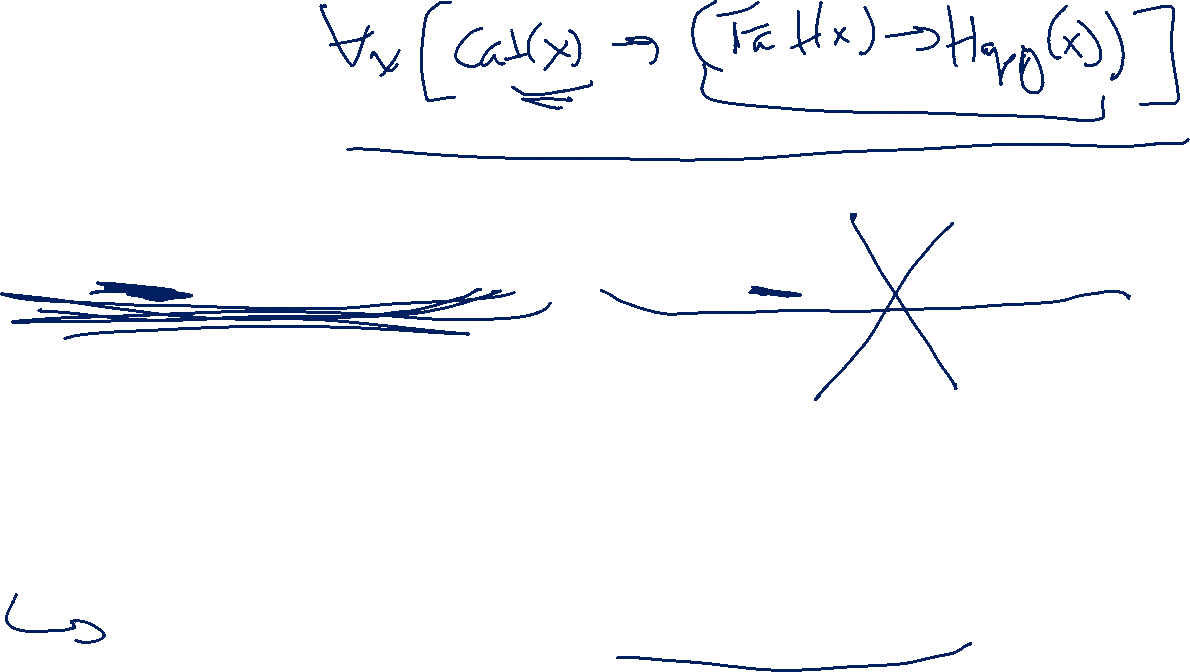 ∀x [Cat(x) → (Fat(x) → Happy(x))]